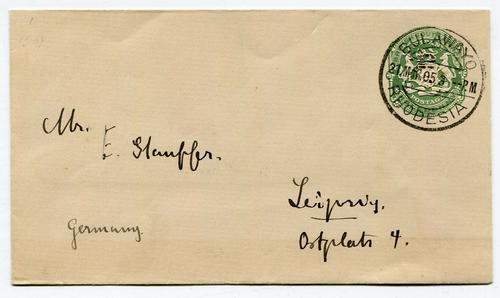 BULAWAYO
21 MR 05
PM
RHODESIA
POSTAGE
Mr.
E. Stauffer.
Leipzig.
Ostplatz 4.
Germany.